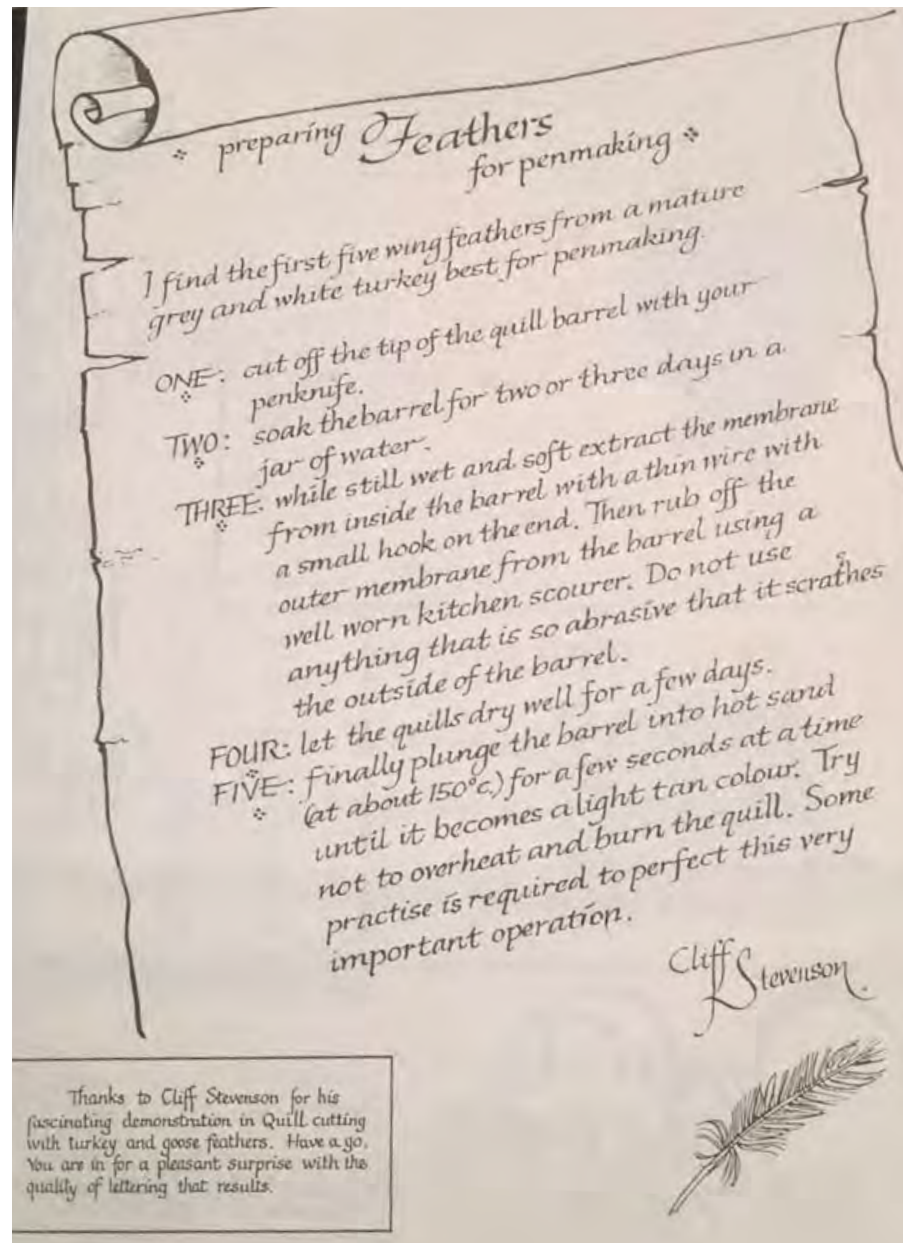 preparing Feathers
for penmaking
I find the first five wing feathers from a mature
grey and white turkey best for penmaking.
ONE: cut off the tip of the quill barrel with your
penknife.
TWO: soak the barrel for two or three days in a
jar of water.
THREE: while still wet and soft extract the membrane
from inside the barrel with a thin wire with
a small hook on the end. Then rub off the
outer membrane from the barrel using a
well worn kitchen scourer. Do not use
anything that is so abrasive that it scratches
the outside of the barrel.
FOUR: let the quills dry well for a few days.
FIVE: finally plunge the barrel into hot sand
(at about 150°c.) for a few seconds at a time
until it becomes a light tan colour. Try
not to overheat and burn the quill. Some
practise is required to perfect this very
important operation.
Cliff
Stevenson.
Thanks to Cliff Stevenson for his
fascinating demonstration in Quill cutting
with turkey and goose feathers. Have a go.
You are in for a pleasant surprise with the
quality of lettering that results.